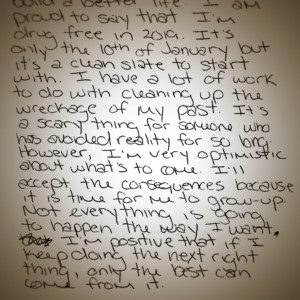 build a better life. I am
proud to say that I'm
drug free in 2019. It's
only the 10th of January but
it's a clean slate to start
with. I have a lot of work
to do with cleaning up the
wreckage of my past. It's
a scary thing for someone who
has avoided reality for so long.
However, I'm very optimistic
about what's to come. I'll
accept the consequences because
it is time for me to grow-up.
Not everything is going
to happen the way I want.
I'm positive that if I
keep doing the next right
thing, only the best can
come from it.